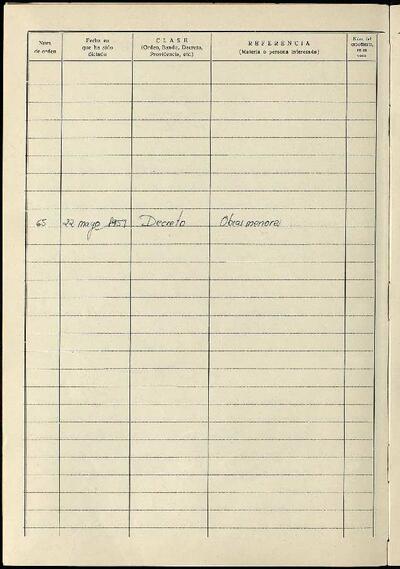 Num. de orden
Fecha en que ha sido dictado
CLASE
(Orden, Bando, Decreto, Providencia, etc.)
REFERENCIA
(Materia o persona interesada)
Núm. del
en su caso
65 22 mayo 1957 Decreto Obras menores